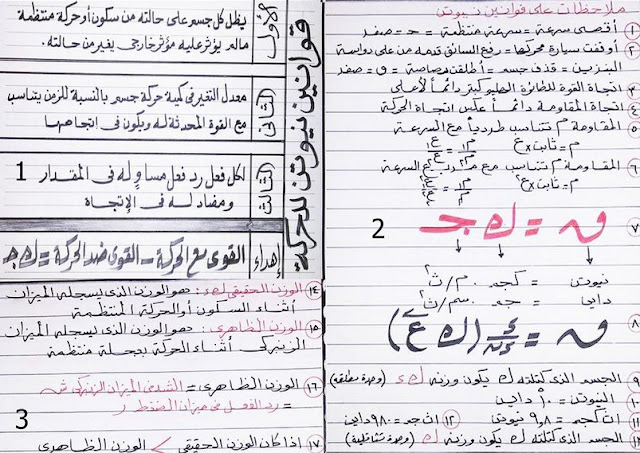 قوانين نيوتن للحركة
الأول
يظل كل جسم على حالته من سكون أو حركة منتظمة
مالم يؤثر عليه مؤثر خارجي يغير من حالته.
الثاني
معدل التغير في كمية حركة جسم بالنسبة للزمن يتناسب
مع القوة المحدثة له ويكون في اتجاهها
الثالث
لكل فعل رد فعل مساوٍ له في المقدار
ومضاد له في الإتجاه
1
إهداء
القوى مع الحركة – القوى ضد الحركة = ك جـ
ملاحظات على قوانين نيوتن
① أقصى سرعة = سرعة منتظمة = حـ = صفر
② أوقفت سيارة محركها = رفع السائق قدمه من على دواسة
البنزين = قذف جسم = أطلقت رصاصة = ق = صفر
③ اتجاة القوة للطائرة الهليوكبتر دائماً لأعلى
④ اتجاة المقاومة دائماً عكس اتجاة الحركة
⑤ المقاومة م تتناسب طردياً مع السرعة
م = ثابت × ع م١/م٢ = ع١/ع٢
⑥ المقاومة م تتناسب مع مربع السرعة
م = ثابت × ع² م١/م٢ = ع١²/ع٢²
⑦ ق = ك جـ
2
نيوتن = كجم . م/ث²
داين = جم . سم/ث²
⑧ ق = ء/ءن (ك ع)
⑨ الجسم الذى كتلته ك يكون وزنه ك ء (وحدة مطلقة)
⑩ النيوتن = ١٠⁵ داين
⑪ ١ث كجم = ٩,٨ نيوتن ⑫ ١ث جم = ٩٨٠ داين
⑬ الجسم الذى كتلته ك يكون وزنه ك (وحدة تثاقلية)
⑭ الوزن الحقيقى ك ء : هو الوزن الذى يسجله الميزان
أثناء السكون أو الحركة المنتظمة
⑮ الوزن الظاهرى : هو الوزن الذى يسجله الميزان
الزنبركى أثناء الحركة بعجلة منتظمة
⑯ الوزن الظاهرى = الشد فى الميزان الزنبركى ش
= رد الفعل فى ميزان الضغط ر
3
⑰ إذا كان الوزن الحقيقى > الوزن الظاهرى